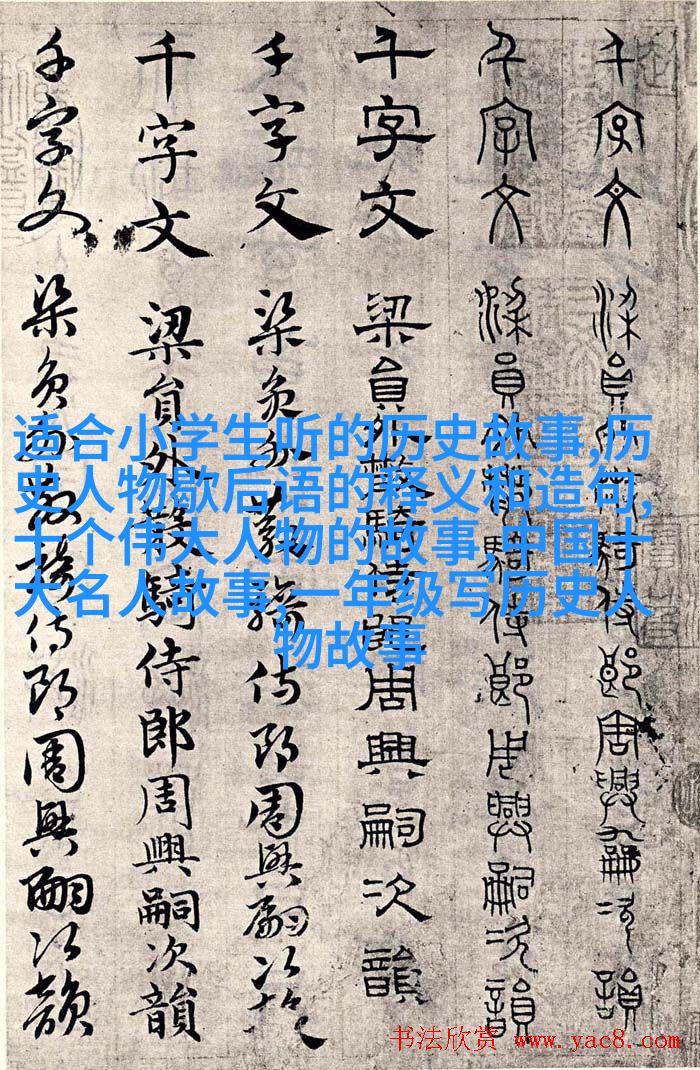 千字文 梁員外散騎侍郎周興嗣次韻
千字文 梁員外散騎侍郎周興嗣次韻
千字文 梁員外散騎侍郎周興嗣次韻
千字文 梁員外散騎侍郎周興嗣次韻
千字文 梁員外散騎侍郎周興嗣次韻
千字文 梁員外散騎侍郎周興嗣次韻
适合小学生听的历史故事,历
史人物歇后语的释义和造句,
十个伟大人物的故事,中国十
大名人故事,一年级写历史人
物故事
书法欣赏 www.yac8.com